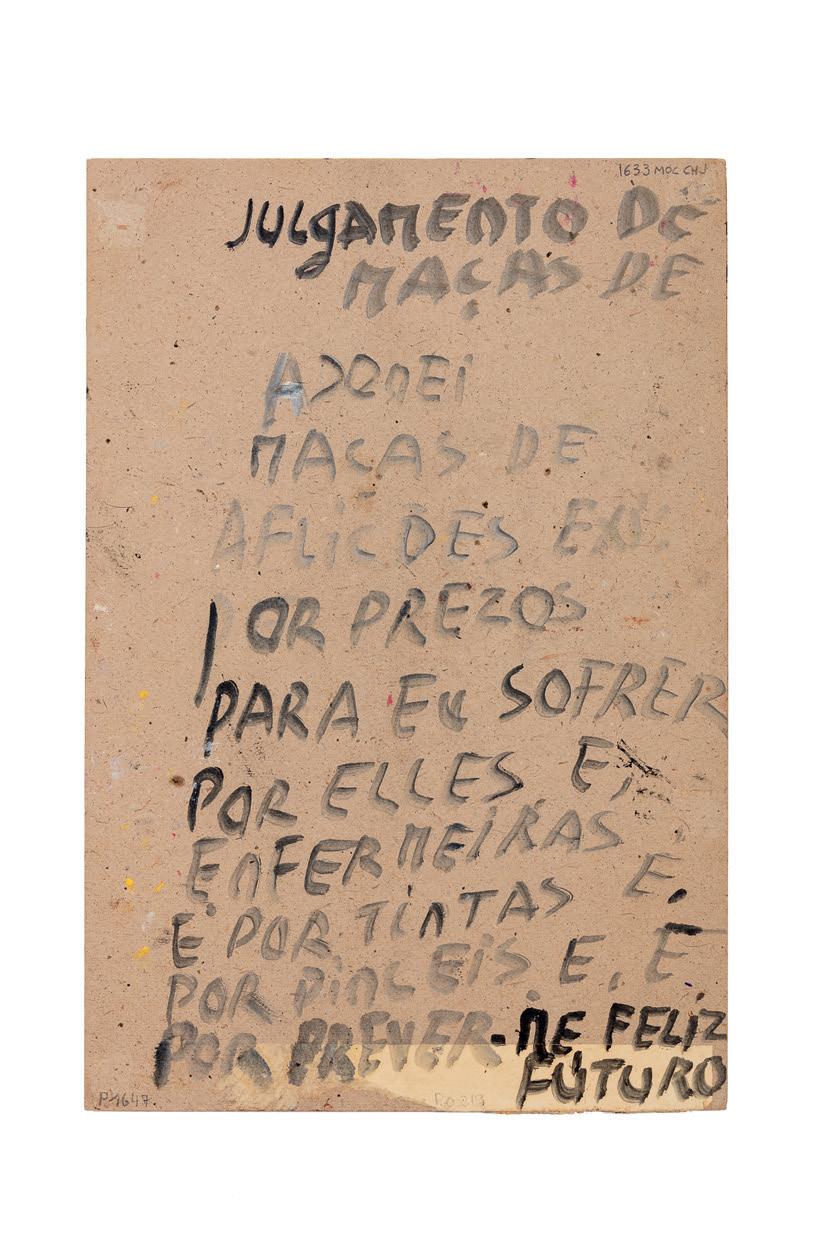 1633 MOC CHJ
JULgAMENTO DE
MAÇAS DE
MACAS DE
AFLiCÕES
POR PREZOS
PARA Eu SOFRER
POR ELLES E,
ENFERMEiRAS
E.
E POR TiNTAS
POR PiNCEiS E. E
POR PREVER-ME FELiZ
FUTURO
P/1647.